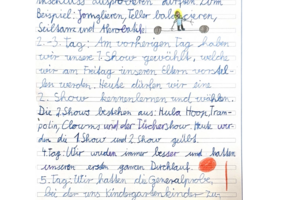 Anschluss ausprobieren durften zum
Beispiel: Jonglieren, Teller balancieren,
Seiltanz und Akrobatik.
2.-3. Tag: Am vorherigen Tag haben
wir unsere 1 Show gewählt, welche
wir am Freitag unseren Eltern vorstel-
len werden. Heute dürfen wir eine
2. Show kennenlernen und wählen.
Die 2 Shows bestehen aus: Hula Hoop, Tram-
polin, Clowns und der Tüchershow. Heute wur-
den die 1 Show und 2 Show geübt.
4. Tag: Wir wurden immer besser und hatten
unseren ersten ganzen Durchlauf.
5. Tag: Wir hatten die Generalprobe,
bei der uns Kindergartenkinder zu